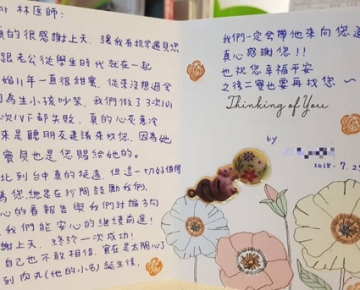 林医師:
真的很感謝上天，讓我有機會遇見您
跟老公從學生時代就在一起
11年一直很甜蜜，從來沒想過會
因為生小孩吵架，我們做了3次IUI
次IVF都失敗，真的心灰意冷
來是聽朋友建議來找您，因為她
寶貝也是您賜給她的。
北到台中真的挺遠，但這一切都值得
為您總是在診間鼓勵我們，
心的看報告與我們討論多
我們能安心的繼續前進!
謝上天，終於一次成功!
自己也不敢相信，實在是太開心了
到肉丸(他的小名)誕生後，
我們一定會帶他來向您道
真心感謝您!!
也祝您幸福平安
之後二寶也要再找您~
Thinking of You
by
2018.7.25